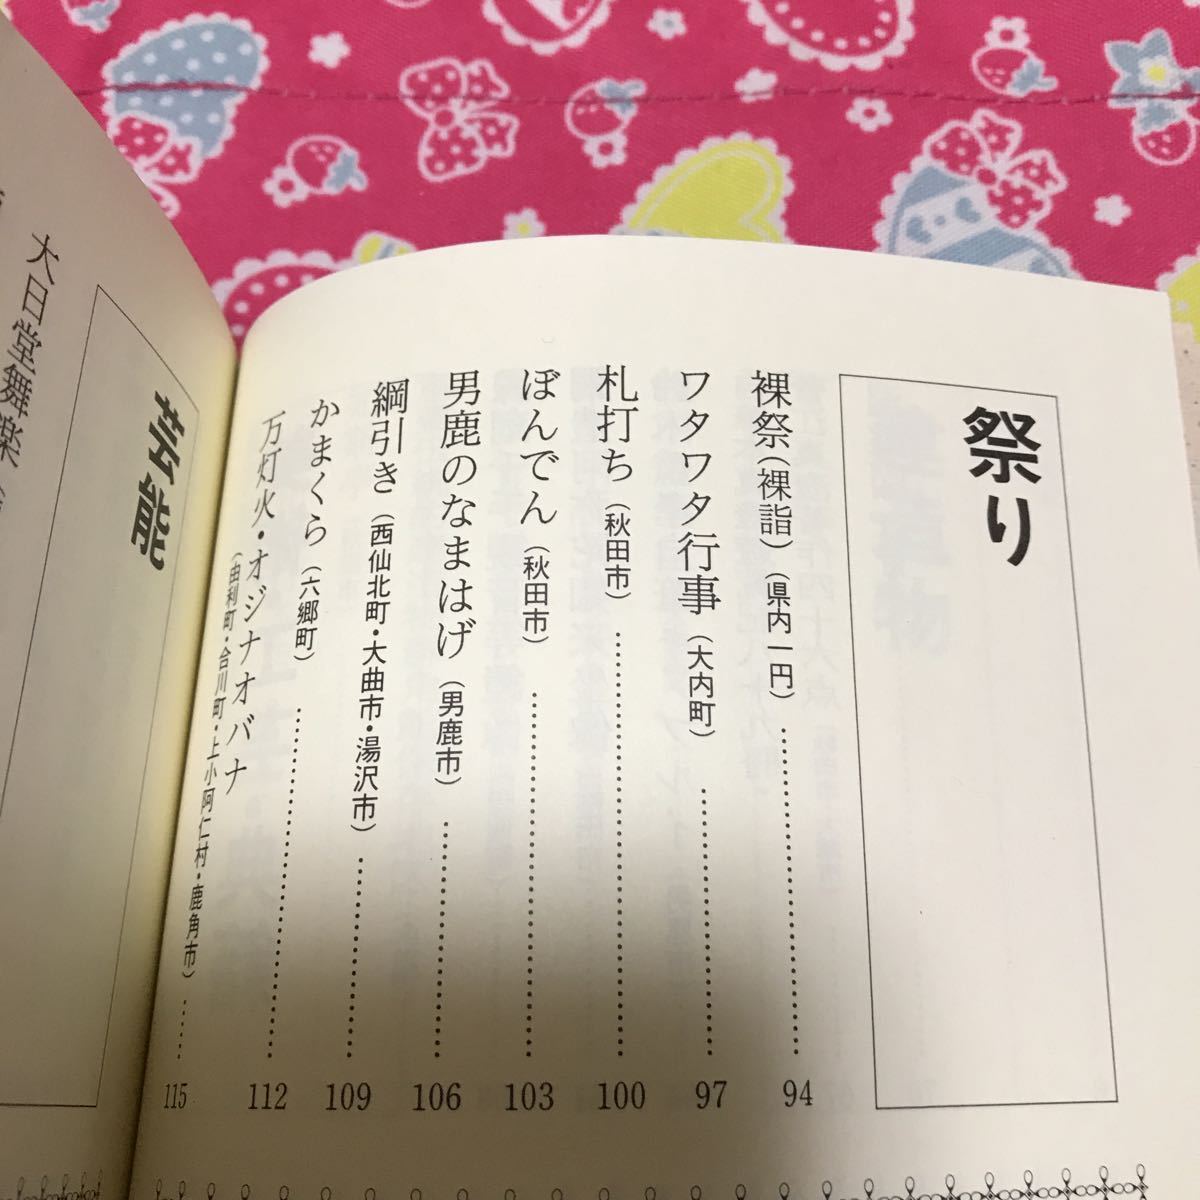 祭り
裸祭(裸詣)(県内一円)……………94
ワタワタ行事(大内町)……………97
札打ち(秋田市)……………100
ぼんでん(秋田市)……………103
男鹿のなまはげ(男鹿市)……………106
綱引き(西仙北町・大曲市・湯沢市)……………109
かまくら(六郷町)……………112
万灯火・オジナオバナ
(由利町・合川町・上小阿仁村・鹿角市)……115
芸能
大日堂舞楽